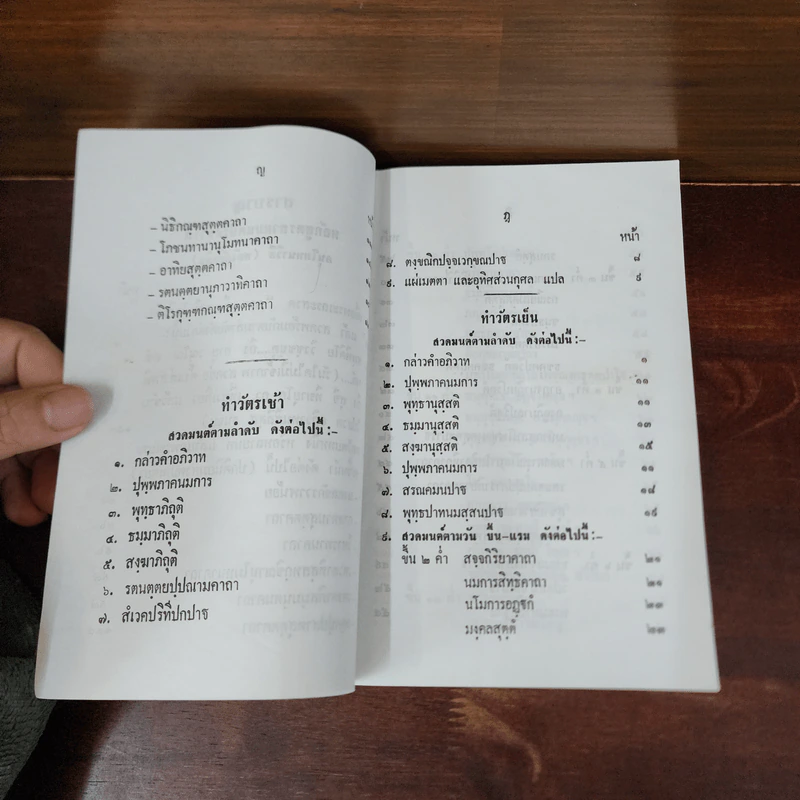 ญ
– นิธิกณฺฑสุตฺตคาถา
– โภชนทานานุโมทนาคาถา
– อาทิยสุตฺตคาถา
– รตนตฺตยานุภาวาทิคาถา
– ติโรกุฑฺฑกณฺฑสุตฺตคาถา
ทำวัตรเช้า
สวดมนต์ตามลำดับ ดังต่อไปนี้ :–
๑. กล่าวคำอภิวาท
๒. ปุพฺพภาคนมการ
๓. พุทฺธาภิถุติ
๔. ธมฺมาภิถุติ
๕. สงฺฆาภิถุติ
๖. รตนตฺตยปฺปณามคาถา
๗. สํเวคปริทีปกปาฐ
ฎ
หน้า
๘. ตงฺขณิกปจฺจเวกฺขณปาฐ ๘
๙. แผ่เมตตา และอุทิศส่วนกุศล แปล ๙
ทำวัตรเย็น
สวดมนต์ตามลำดับ ดังต่อไปนี้ :–
๑. กล่าวคำอภิวาท ๑
๒. ปุพฺพภาคนมการ ๑๑
๓. พุทฺธานุสฺสติ ๑๑
๔. ธมฺมานุสฺสติ ๑๓
๕. สงฺฆานุสฺสติ ๑๕
๖. ปุพฺพภาคนมการ ๑๑
๗. สรณคมนปาฐ ๑๘
๘. พุทฺธปาทนมสฺสนปาฐ ๑๙
๙. สวดมนต์ตามวัน ขึ้น–แรม ดังต่อไปนี้ :–
ขึ้น ๒ ค่ำ สจฺจกิริยาคาถา ๒๑
นมการสิทฺธิคาถา ๒๑
นโมการอฏฺฐกํ ๒๓
มงฺคลสุตฺตํ ๒๓